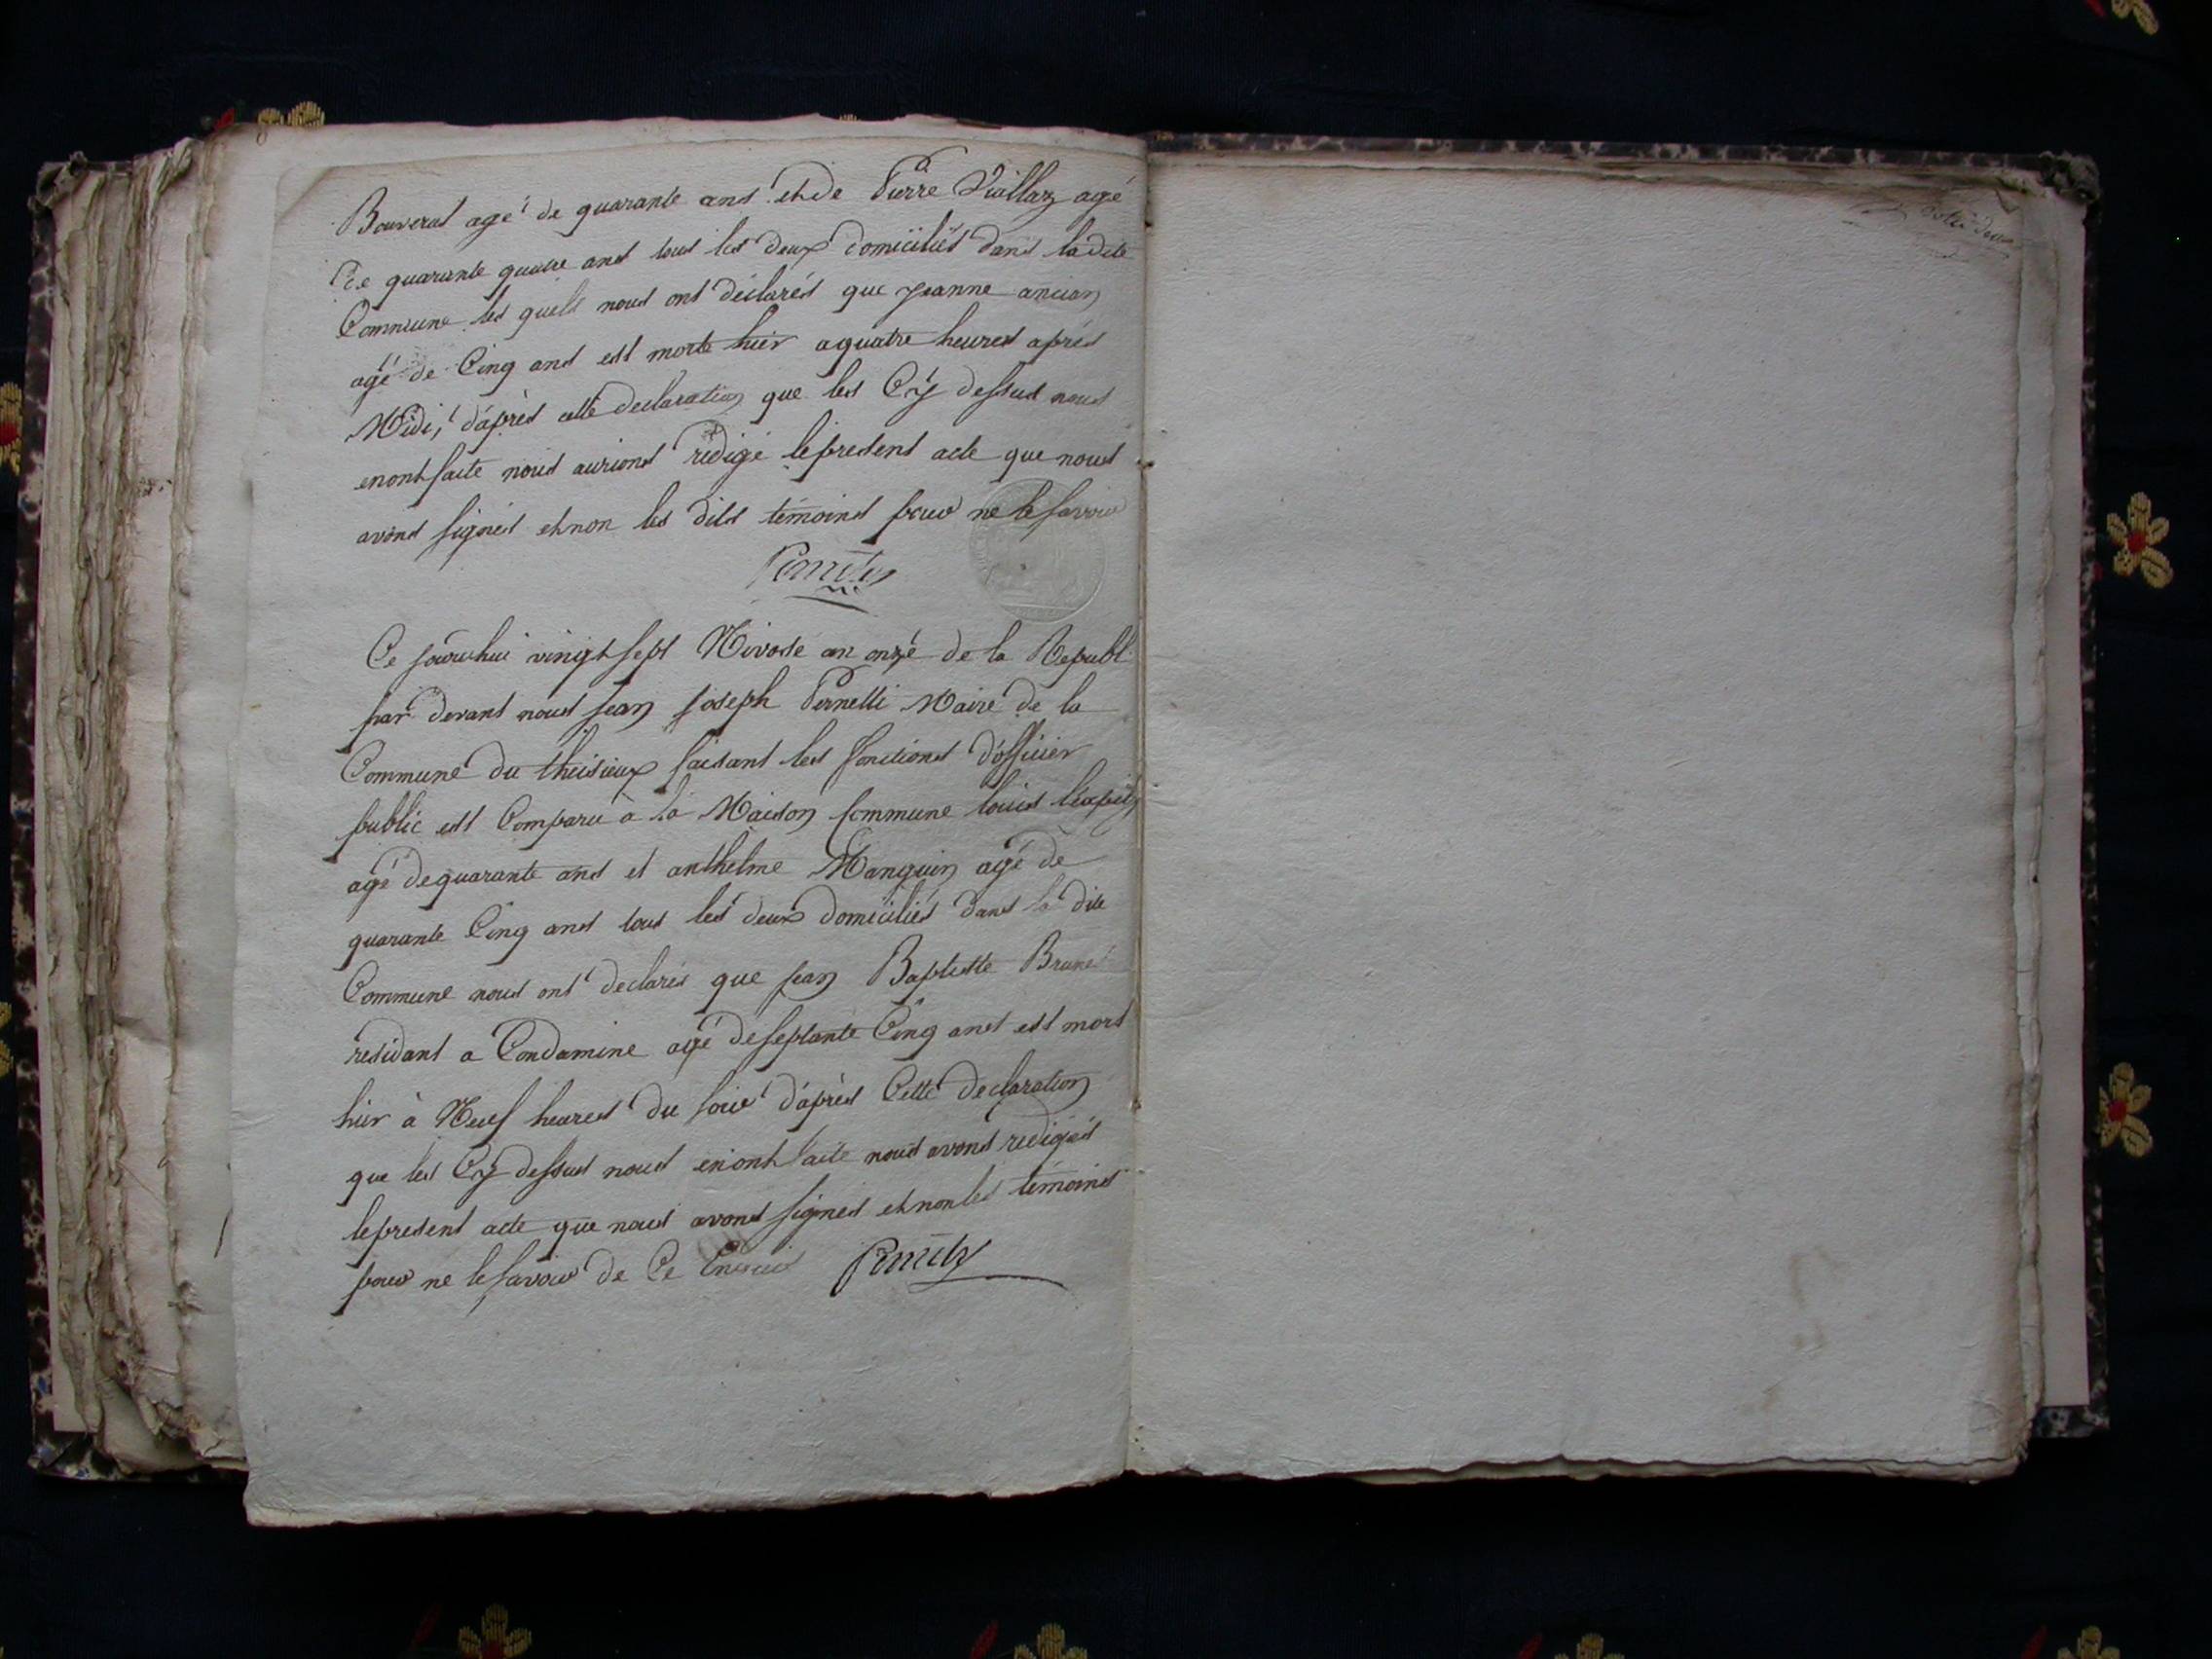 Bouverat agé de quarante ans et de Pierre Viallaz agé
de quarante quatre ans tous les deux domiciliés dans ladite
Commune les quels nous ont déclarés que jeanne
agé de Cinq ans est morte hier a quatre heures après
Midi, d'après cette declaration que les Cy dessus nous
en ont faite nous aurions redigé le present acte que nous
avons signés et non les dits témoins pour ne le savoir
Ce jourdhui vingt sept Nivose an onze de la Republ
par devant nous jean joseph Pernetti Maire de la
Commune du faisant les fonctions d'officier
public est Comparu à la Maison Commune louis
agé de quarante ans et anthelme Manguin agé de
quarante Cinq ans tous les deux domiciliés dans la dite
Commune nous ont declarés que jean Baptiste
residant a Condamine agé de septante Cinq ans est mort
hier à Neuf heures du soir d'après Cette declaration
que les Cy dessus nous en ont faite nous avons redigés
le present acte que nous avons signés et non les témoins
pour ne le savoir de Ce